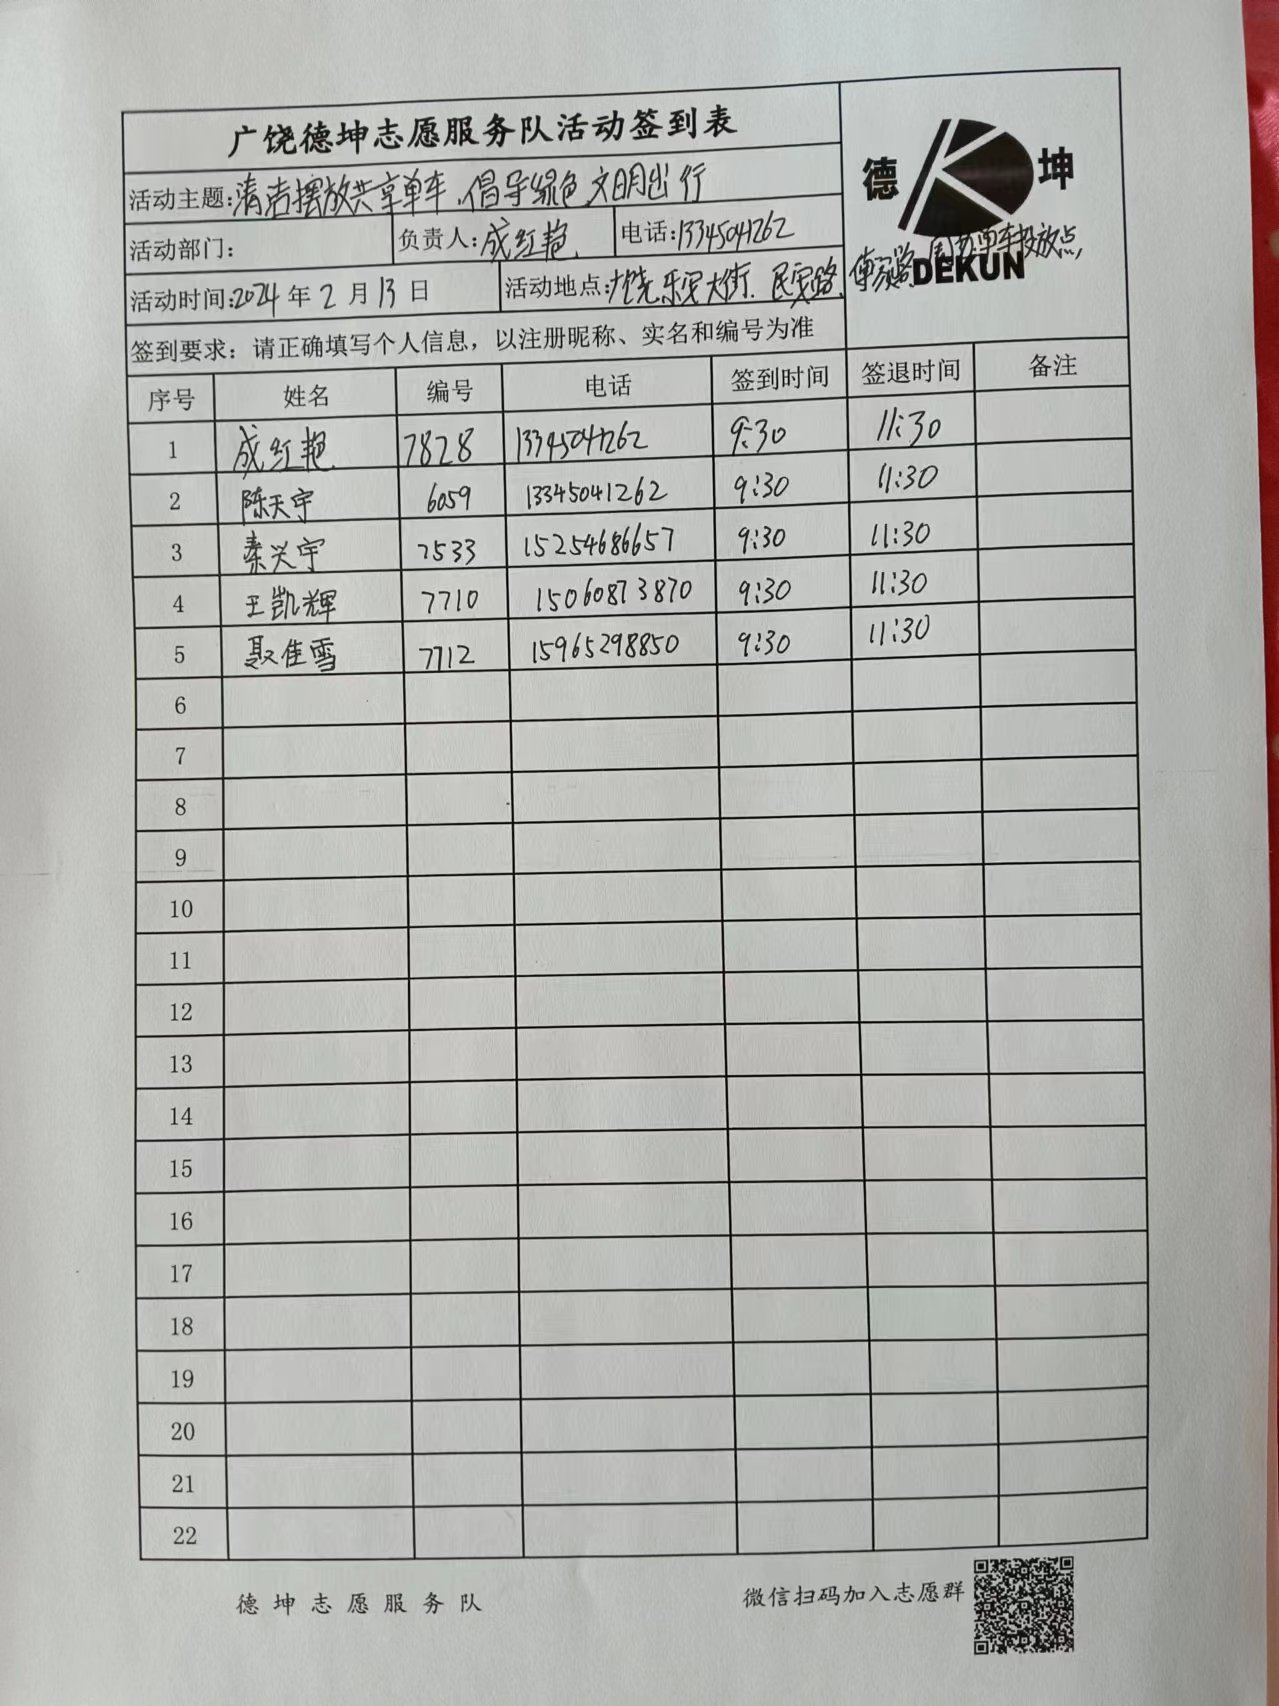 广饶德坤志愿服务队活动签到表
德 坤
DEKUN
活动主题:清洁摆放共享单车,倡导绿色文明出行
活动部门: 负责人:成红艳 电话:13345041262
活动时间:2024年2月13日 活动地点:广饶乐安大街、民安路、傅家路周边单车投放点
签到要求：请正确填写个人信息，以注册昵称、实名和编号为准
序号 姓名 编号 电话 签到时间 签退时间 备注
1 成红艳 7828 13345041262 9:30 11:30
2 陈天宇 6059 13345041262 9:30 11:30
3 秦兴宇 7533 15254686657 9:30 11:30
4 王凯辉 7710 15060873870 9:30 11:30
5 聂佳雪 7712 15965298850 9:30 11:30
6
7
8
9
10
11
12
13
14
15
16
17
18
19
20
21
22
德坤志愿服务队 微信扫码加入志愿群